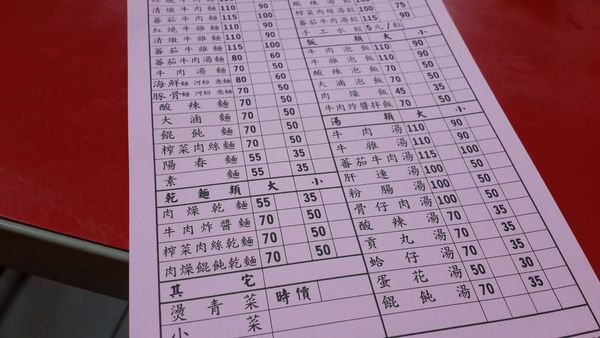 紅燒牛肉麵 110 90
番茄牛肉麵 115 100
紅燒牛雜麵 110 90
清燉牛雜麵 110 90
番茄牛雜麵 115 100
番茄牛肉湯麵 80 60
牛肉湯麵 70 50
海鮮麵 河粉 意麵 80 60
豚骨麵 河粉 意麵 80 60
酸辣麵 70 50
大滷麵 70 50
餛飩麵 70 50
榨菜肉絲麵 70 50
陽春麵 55 35
素麵 55 35
乾麵類 大 小
肉燥乾麵 55 35
牛肉炸醬麵 70 50
榨菜肉絲乾麵 70 50
肉燥餛飩乾麵 70 50
其它
燙青菜 時價
小菜
酸辣湯餃 100
榨菜肉絲湯餃 100 75
番茄牛肉湯餃 115 90
手工水餃5元/粒
飯類 大 小
牛肉泡飯 110 90
牛雜泡飯 110 90
酸辣泡飯 70 50
大滷泡飯 70 50
肉燥飯 45 35
牛肉炸醬拌飯 70 50
湯類 大 小
牛肉湯 110 90
牛雜湯 110 90
番茄牛肉湯 115 100
肝連湯 100
粉腸湯 100 50
骨仔肉湯 100 50
酸辣湯 70 50
貢丸湯 70 50
蛤仔湯 70 35
蛋花湯 50 30
餛飩湯 70 35